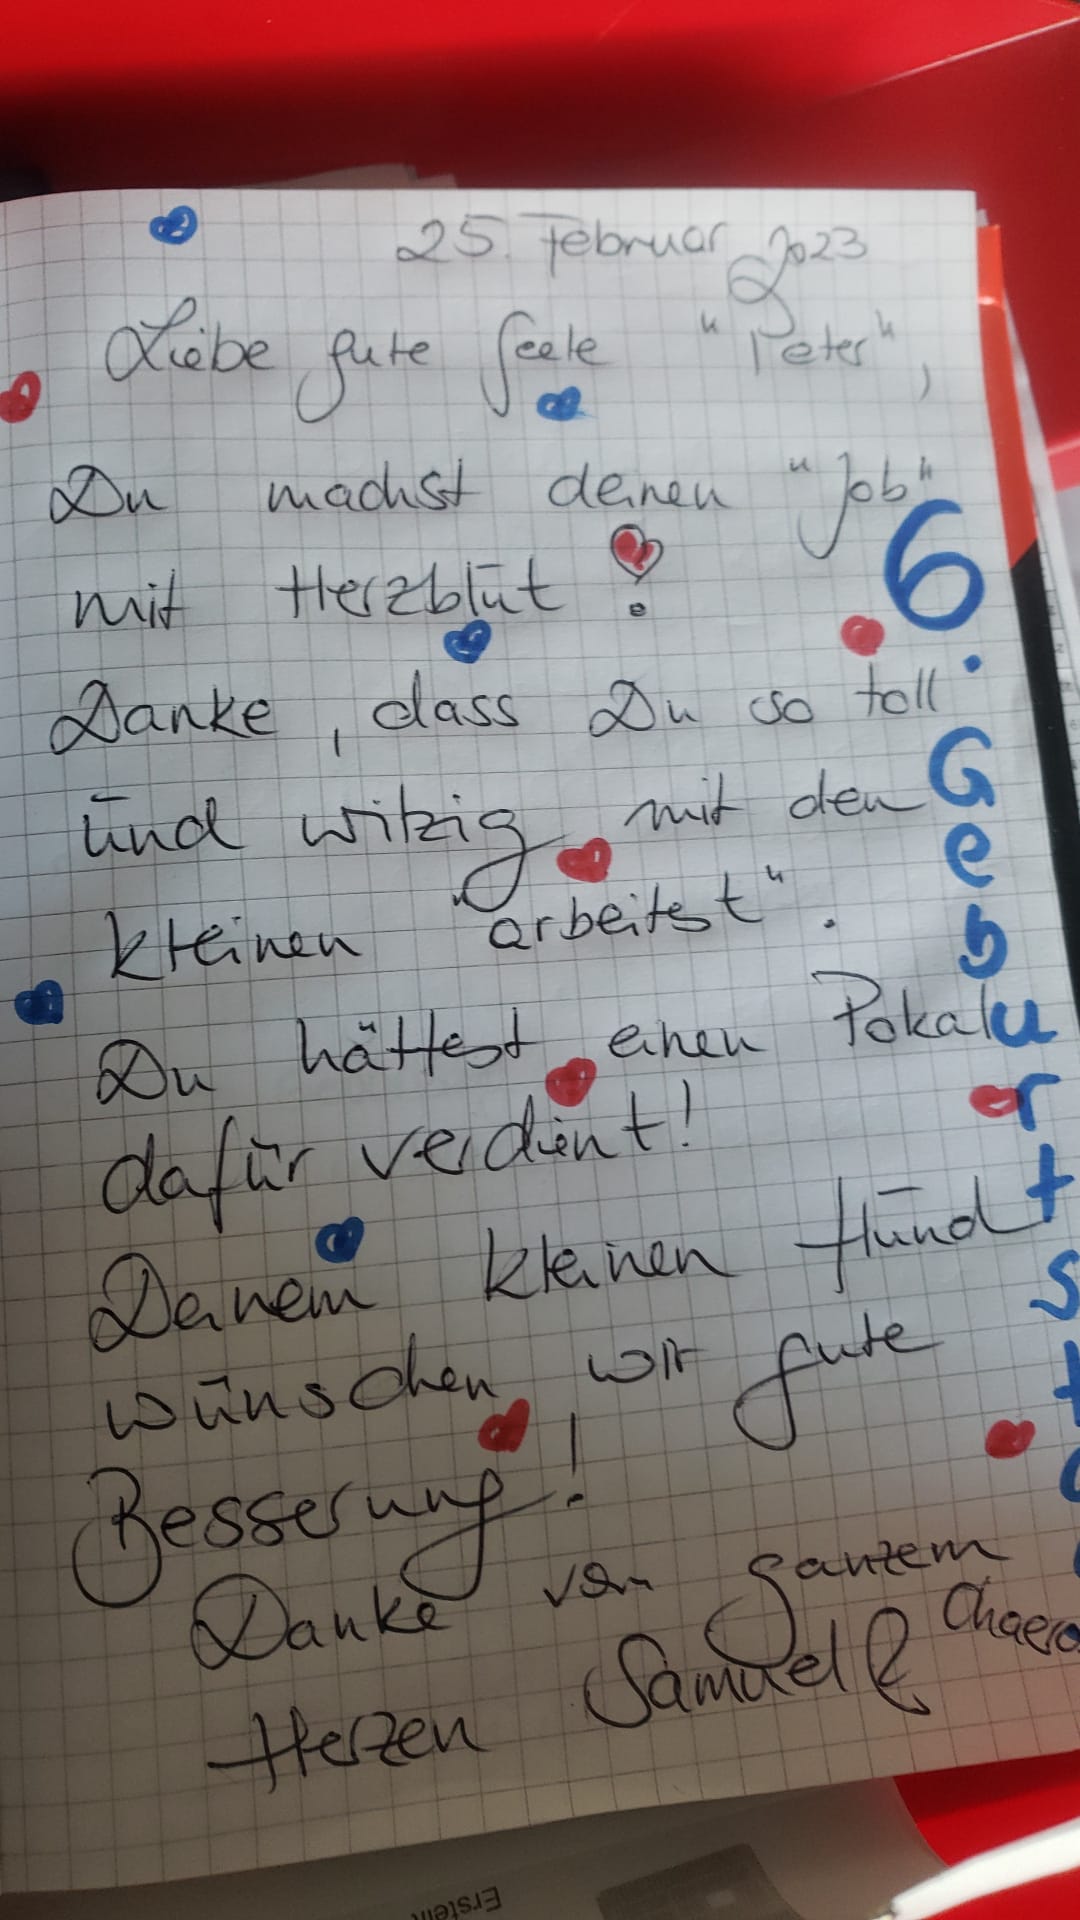 25. Februar 2023
Liebe gute Seele "Peter",
Du machst deinen "Job"
mit Herzblut !
Danke, dass Du so toll
und witzig mit den
kleinen "arbeitest".
Du hättest einen Pokal
dafür verdient!
Deinem kleinen Hund
wünschen wir gute
Besserung!
Danke von ganzem
Herzen Samuel &
6. Geburtst
Erstein